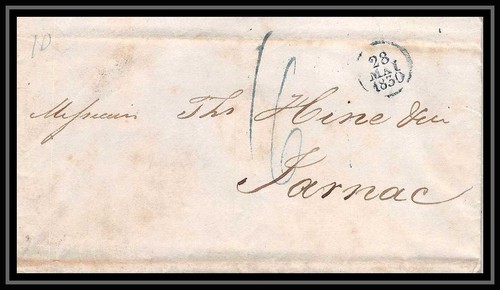 10
16
28
MAI
1830
Messieurs Ths Hine &
Jarnac